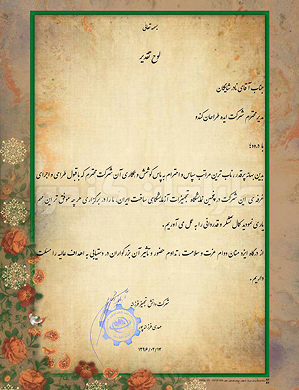 بسمه تعالی
لوح تقدیر
جناب آقای نادر شایگان
مدیر محترم شرکت ایده طراحان کندو
با درود؛
بدین وسیله مراتب سپاس و احترام به پاس کوشش و همکاری آن شرکت محترم که با قبول طراحی و اجرای
غرفه ی این شرکت در پنجمین نمایشگاه تجهیزات آزمایشگاهی ساخت ایران، ما را در برگزاری هر چه موفق تر آن
یاری نمودید کمال تشکر و قدردانی را به عمل می آوریم.
از درگاه ایزد منان دوام عزت و سلامت، تداوم حضور و تأثیر آن بزرگواران در دستیابی به اهداف عالیه را مسئلت
داریم.
شرکت دانش تجهیز فرزانه
مهدی فرزانه پور
۱۳۹۶/۰۲/۱۳